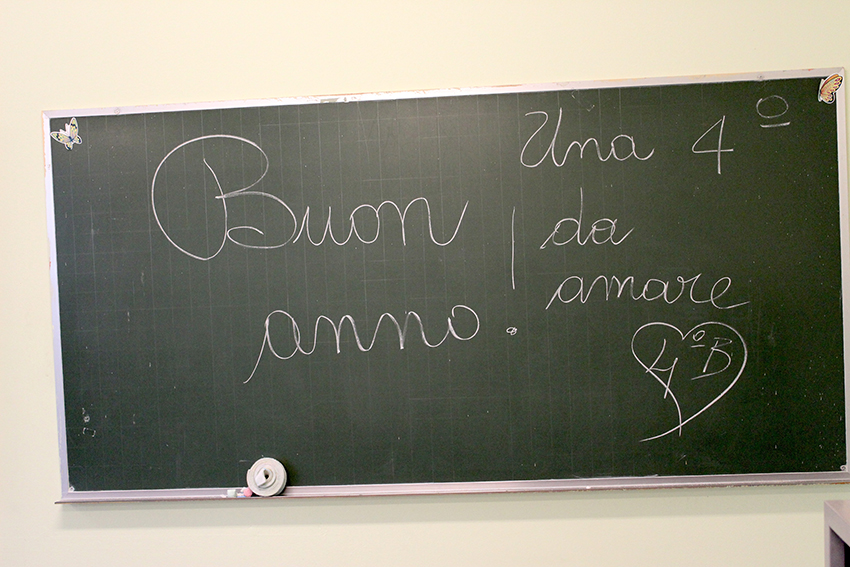 Buon
anno!
Una 4º
da
amare
4ºB